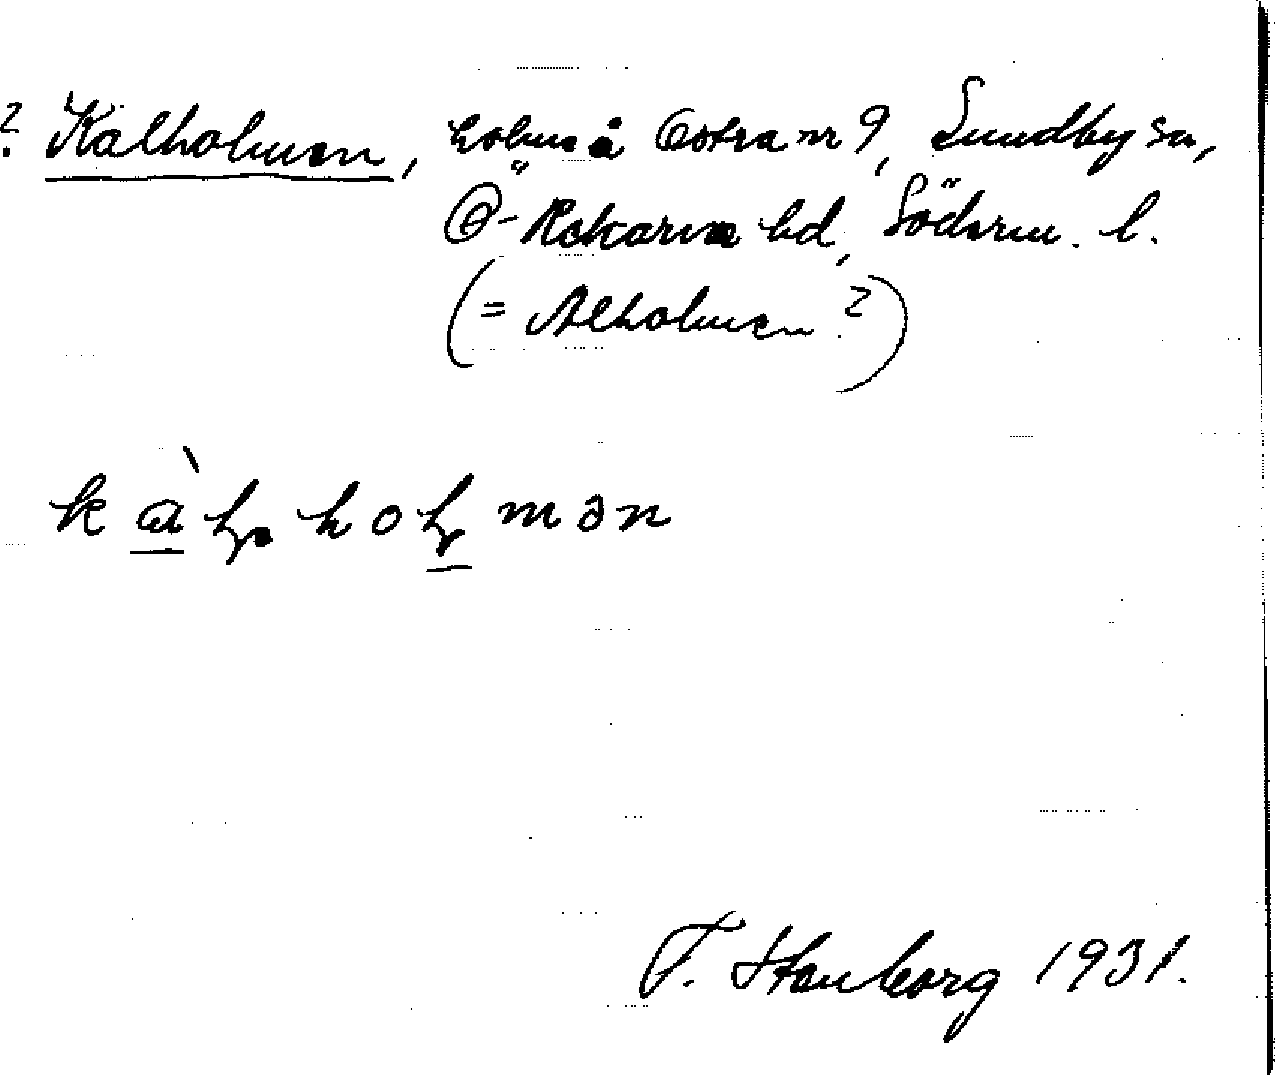 ? Kalholmen, holme å Ostra nr 9, Lundby sn,
Ö-Rekarne hd, Söderm. l.
(= Alholmen?)
k à ɭ. h o ɭ m ə n
F. Stenborg 1931.